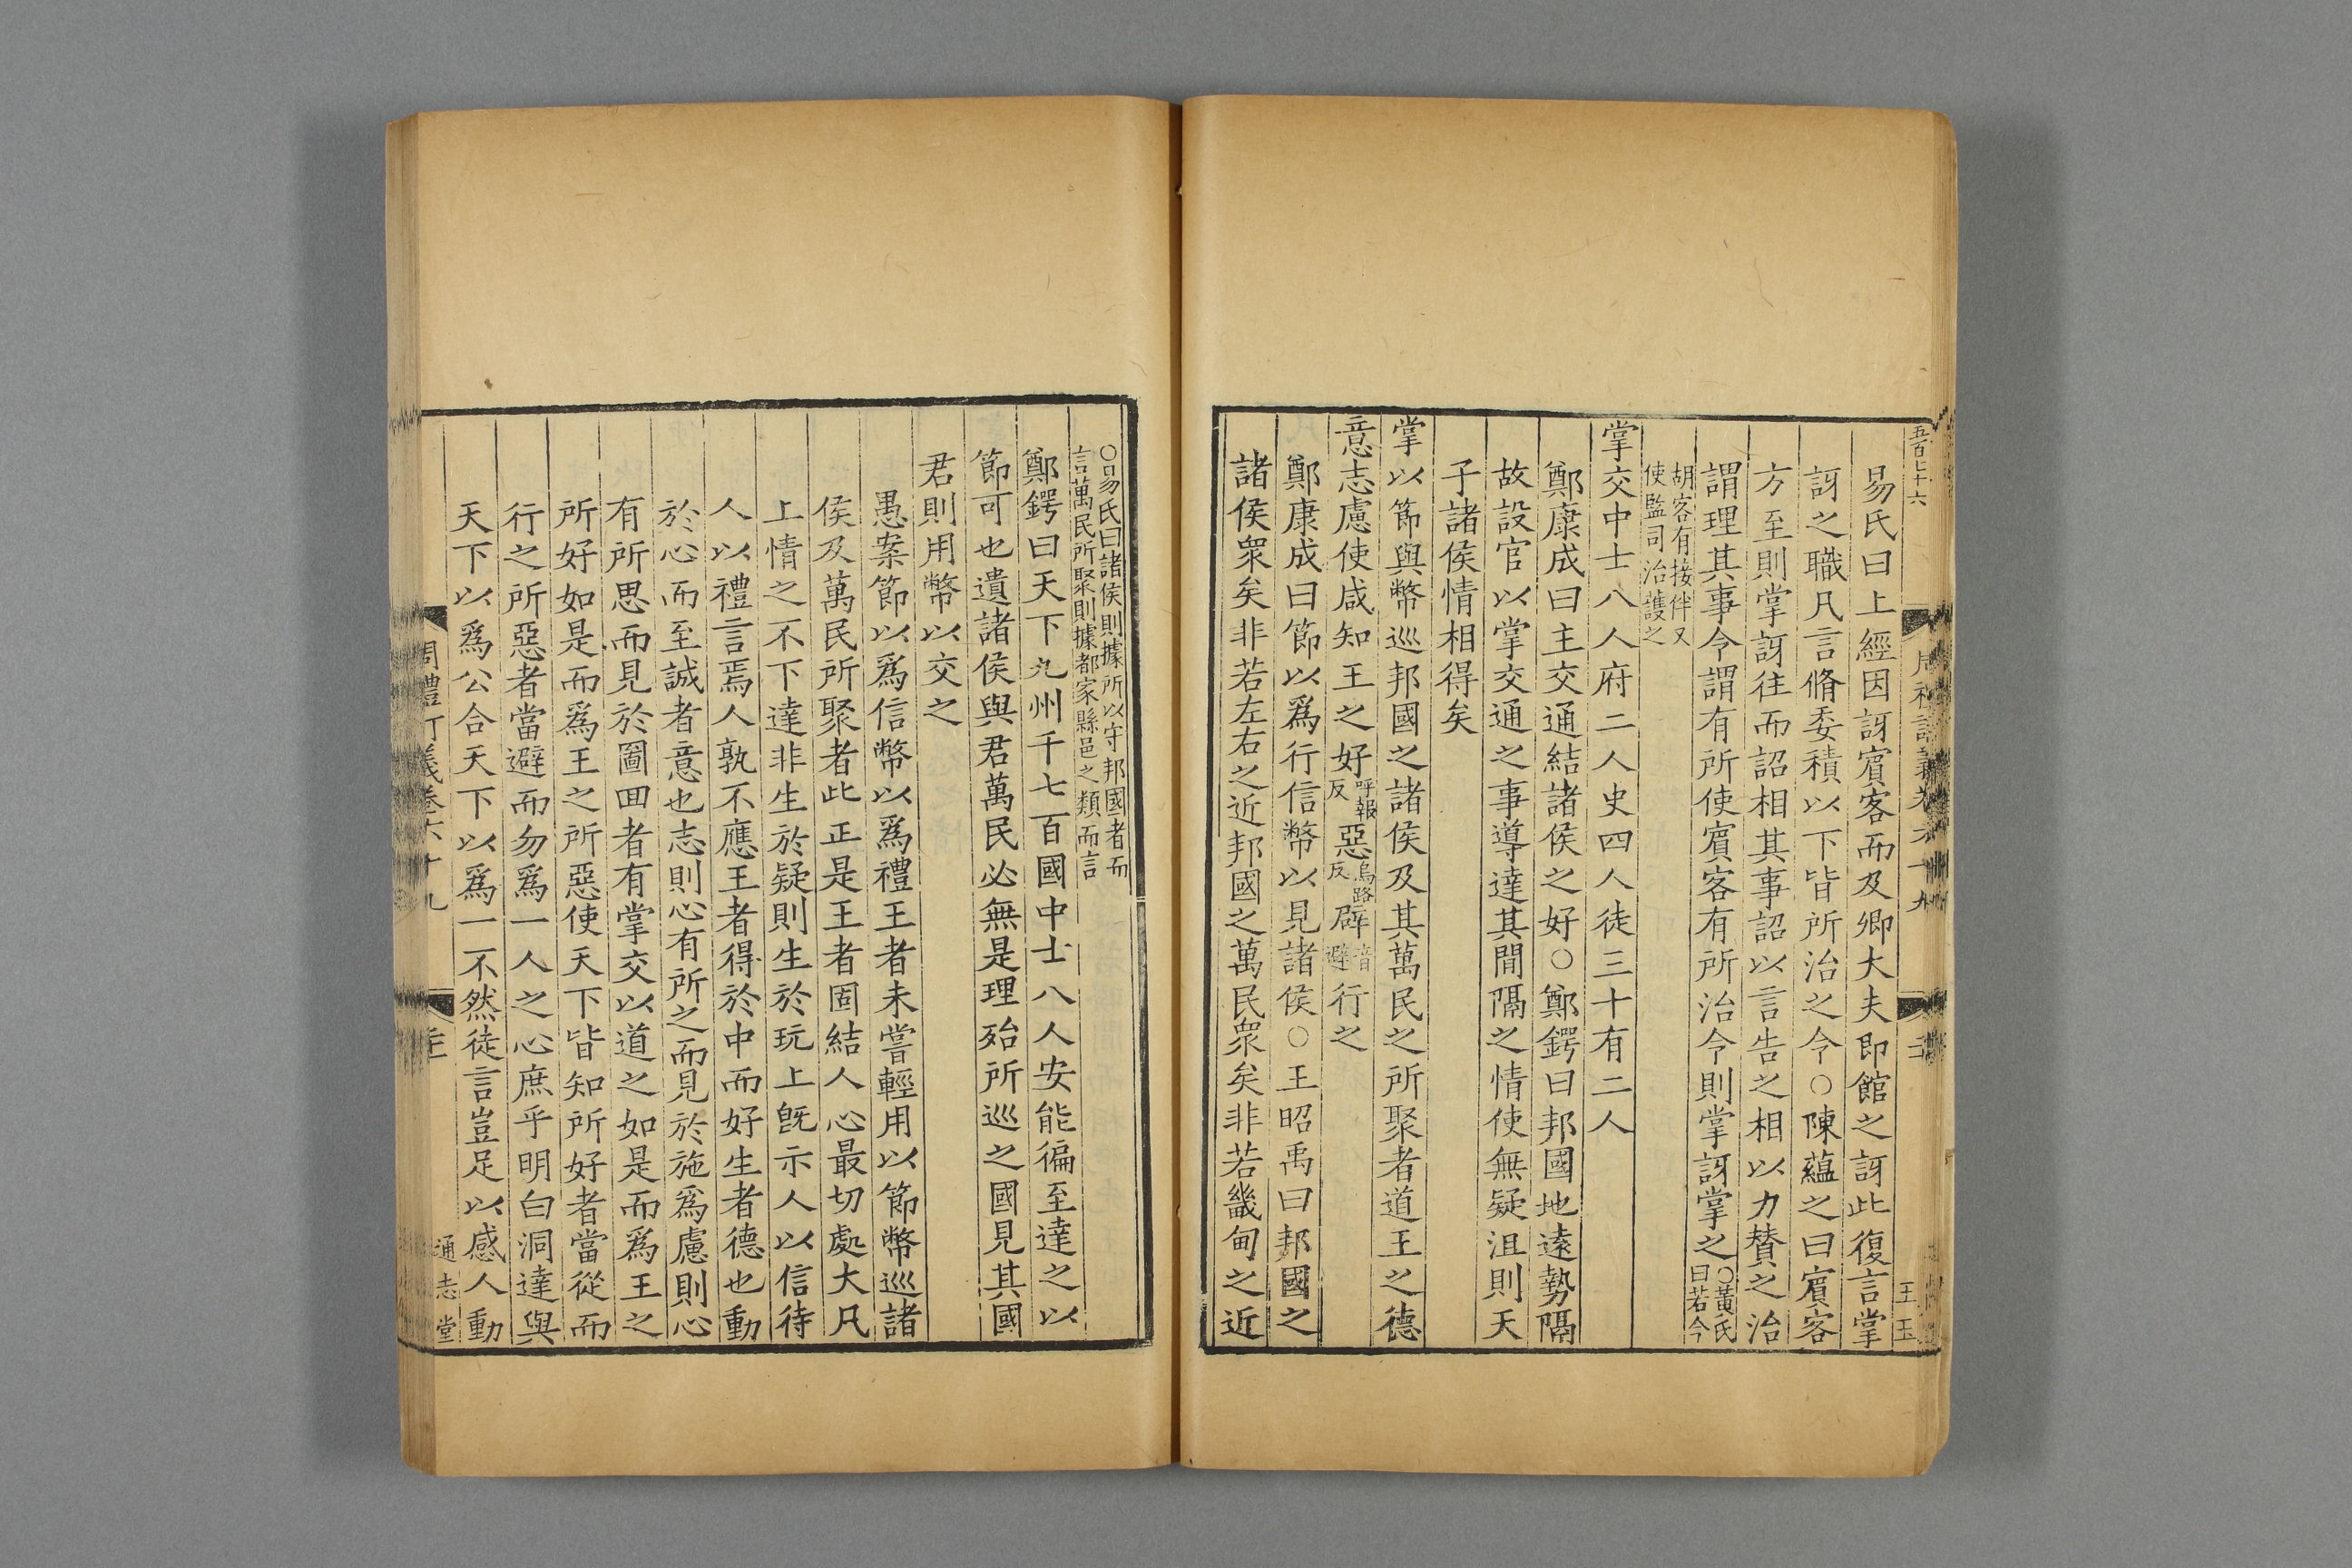 五百七十六
易氏曰上經因訝賓客而及卿大夫即館之訝此復言掌
訝之職凡言脩委積以下皆所治之令○陳蘊之曰賓客
方至則掌訝往而詔相其事詔以言告之相以力賛之治
謂理其事令謂有所使賓客有所治令則掌訝掌之○黃氏曰若今
胡客有接伴又使監司治護之
掌交中士八人府二人史四人徒三十有二人
鄭康成曰主交通結諸侯之好○鄭鍔曰邦國地逺勢隔
故設官以掌交通之事導達其間隔之情使無疑沮則天
子諸侯情相得矣
掌以節與幣巡邦國之諸侯及其萬民之所聚者道王之德
意志慮使咸知王之好呼報反惡烏路反辟音避行之
鄭康成曰節以爲行信幣以見諸侯○王昭禹曰邦國之
諸侯衆矣非若左右之近邦國之萬民衆矣非若畿甸之近
王玉
○易氏曰諸侯則據所以守邦國者而言萬民所聚則據都家縣邑之類而言
鄭鍔曰天下九州千七百國中士八人安能徧至達之以
節可也遺諸侯與君萬民必無是理殆所巡之國見其國
君則用幣以交之
愚案節以爲信幣以爲禮王者未嘗輕用以節幣巡諸
侯及萬民所聚者此正是王者固結人心最切處大凡
上情之不下達非生於疑則生於玩上旣示人以信待
人以禮言焉人孰不應王者得於中而好生者德也動
於心而至誠者意也志則心有所之而見於施爲慮則心
有所思而見於圖囬者有掌交以道之如是而爲王之
所好如是而爲王之所惡使天下皆知所好者當從而
行之所惡者當避而勿爲一人之心庶乎明白洞達與
天下以爲公合天下以爲一不然徒言豈足以感人動
周禮訂義卷六十九
通志堂